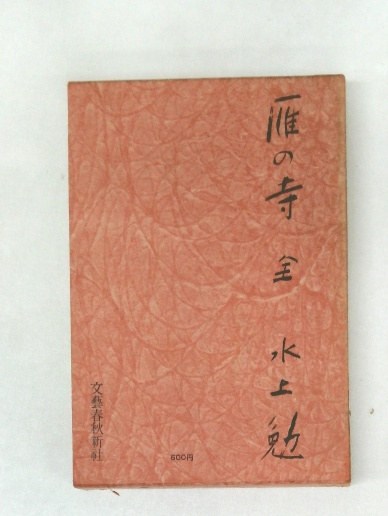 雁の寺 全 水上勉
文藝春秋新社
600円